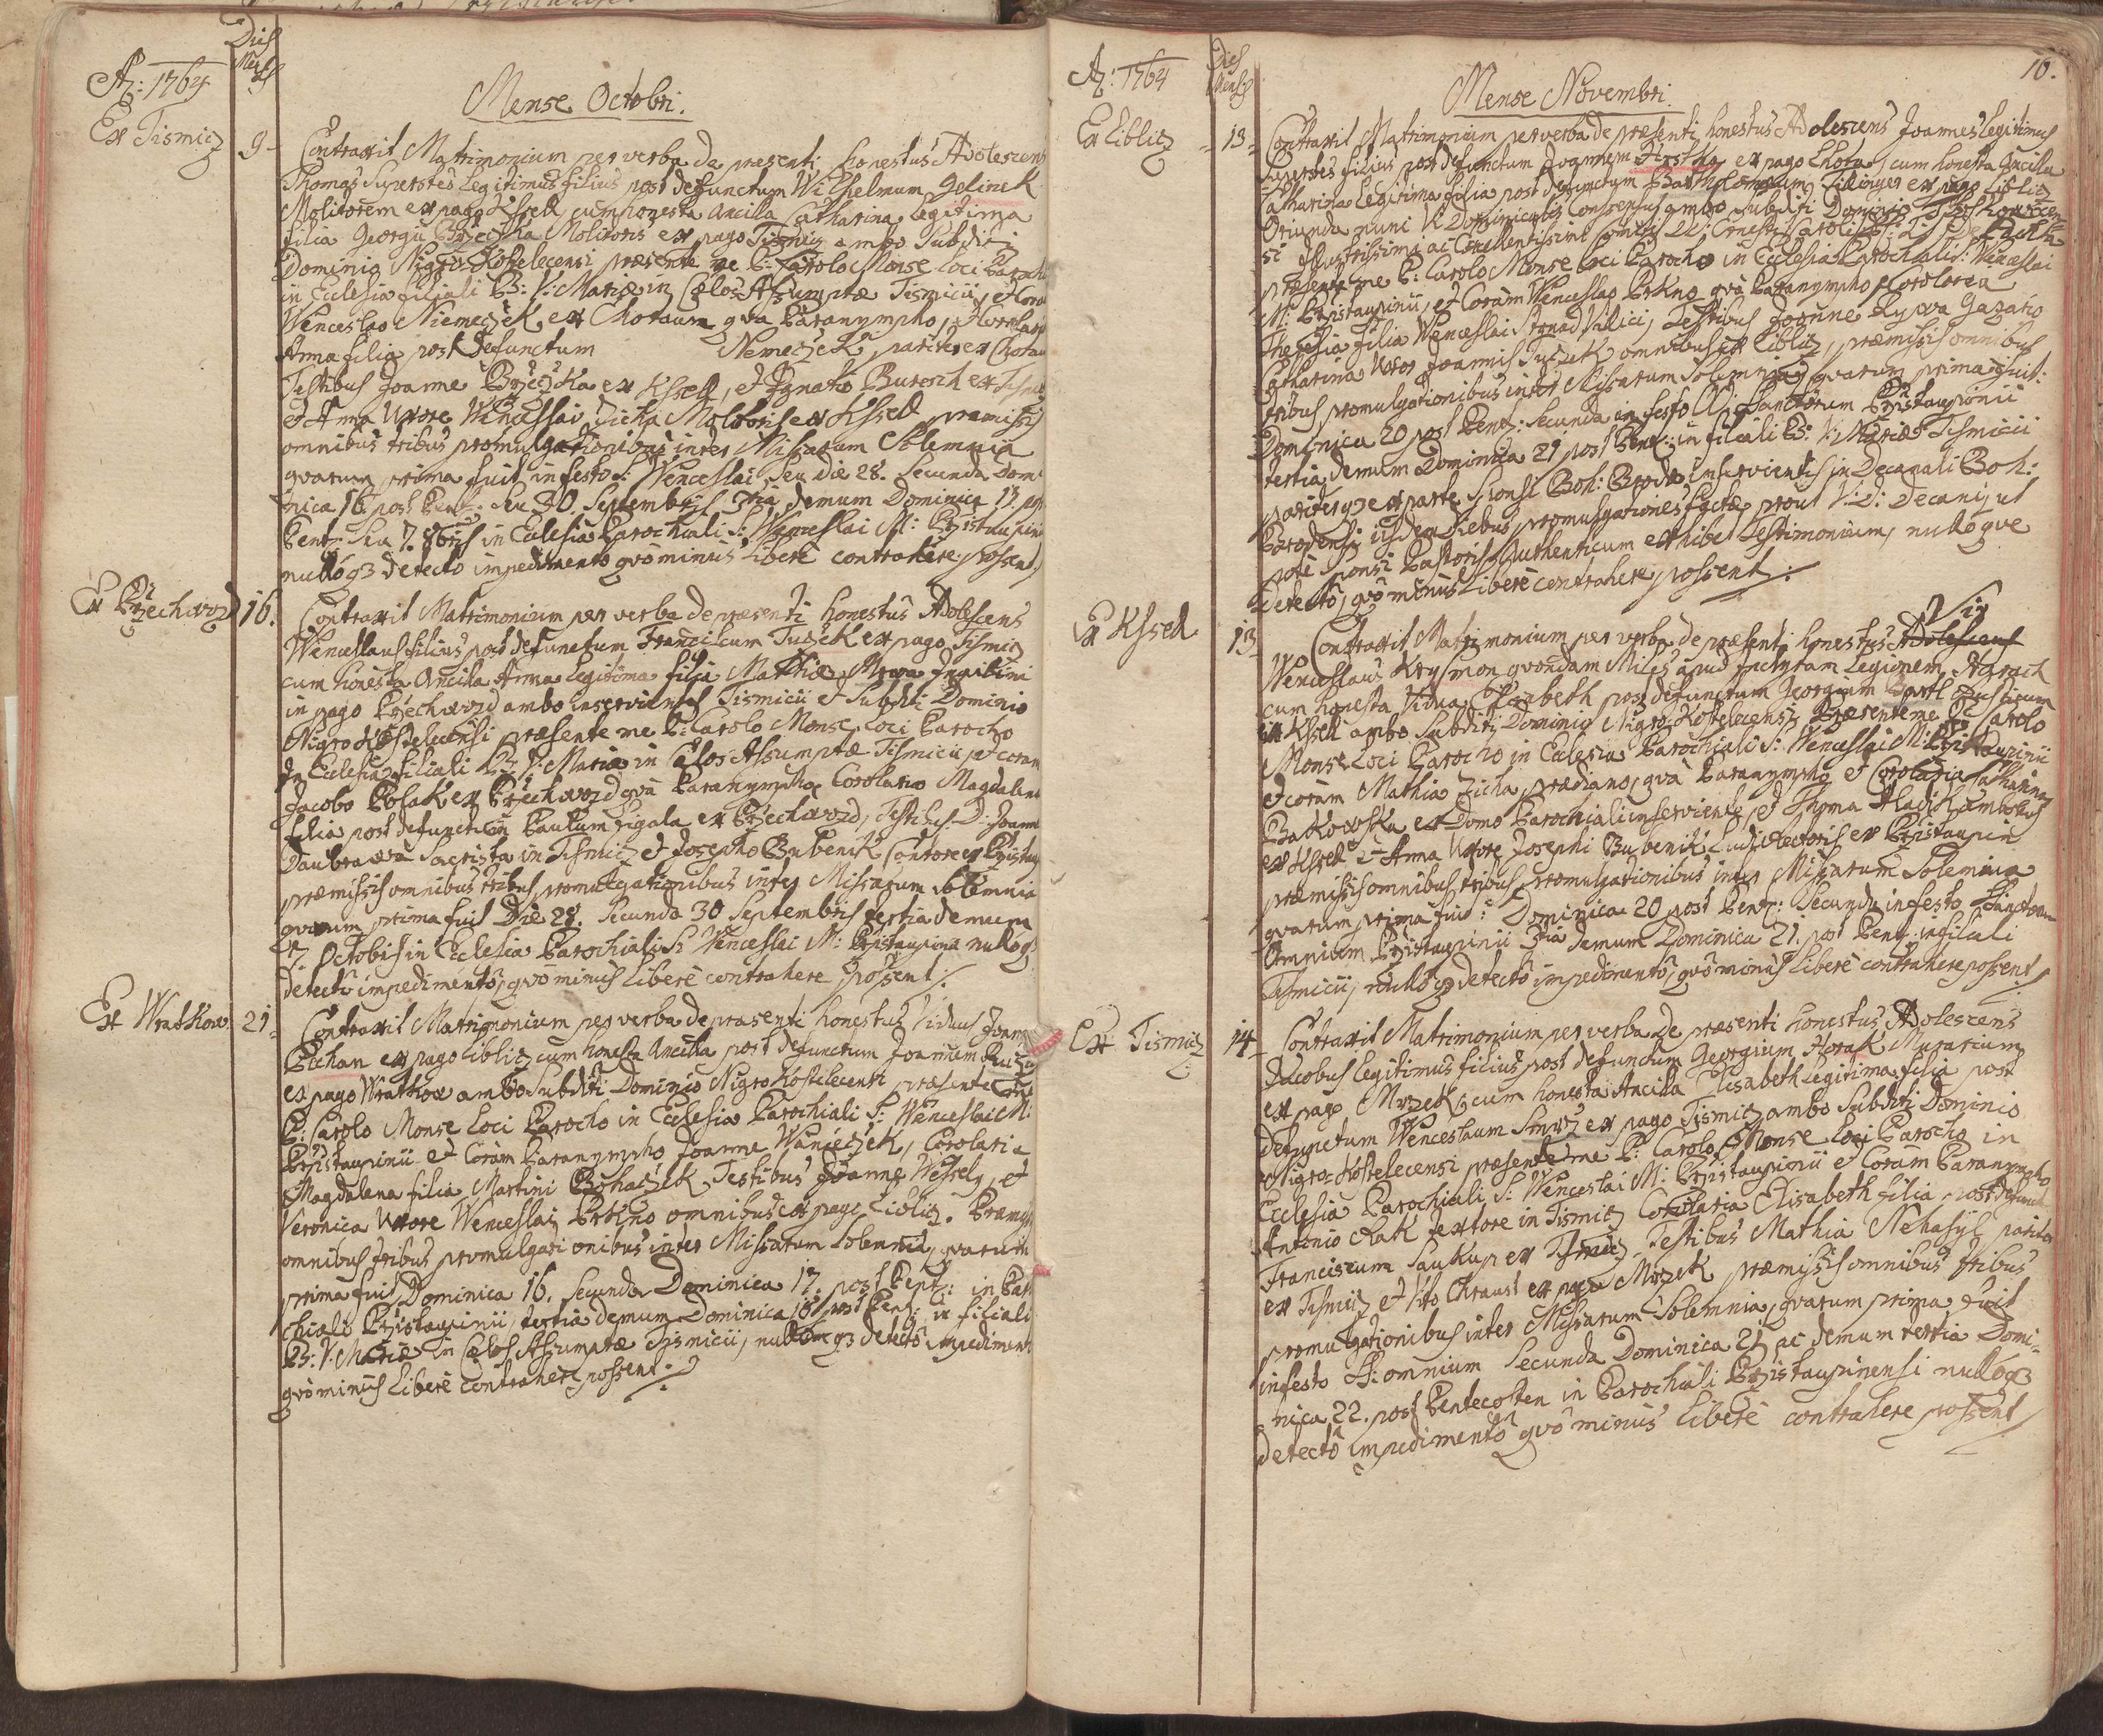 Dies
Mensis
A: 1764
Mense Octobri.
Ex Tismicz
9
Contraxit Matrimonium per verba de praesenti honestus Adolescens
Thomas Superstes Legitimus filius post defunctum Wilhelmum Jelinek
Molitorem ex pago Kssell cum honesta Ancilla Catharina Legitima
filia Georgii Molitoris ex pago Tismicz ambo Subditi
Dominio Nigro Kostelecensi praesente me P: Carolo Monse Loci Parocho
in Ecclesia filiali B: V: Mariae in Caelos Assumptae Tismicii, et Coram
Wenceslao Niemeczek ex Chotaun qva Paranympho,
Anna filia post defunctum Nemeczek pariter ex Chotaun
Testibus Joanne ex Kssell, et Ignatio Buresch ex
et Anna Uxore Wenceslai Zicha Molitoris ex Kssell praemissis
omnibus tribus promulgationibus inter Missarum Solemnia
qvarum prima fuit in festo S: Wenceslai Seu die 28. Secunda Domi
nica 16 post Pent: Seu 30. Septembris, 3tia demum Dominica 17. post
Pent: Seu 7. 8bris in Ecclesia Parochiali S: Wenceslai M: Przistaupini
nulloq3 detecto impedimento qvo minus Libere contrahere possent
Ex Przechwozd
16.
Contraxit Matrimonium per verba de praesenti honestus Adolescens
Wenceslaus filius post defunctum Franciscum Tuczek ex pago Tismicz
cum honesta Ancilla Anna Legitima filia Mathiae Inqvilini
in pago Przechwozd ambo inservientes Tismicii et Subditi Dominio
Nigro Kostelecensi praesente me P: Carolo Monse Loci Parocho
In Ecclesia filiali B: V: Mariae in Caelos Assumptae Tismicii, et coram
Jacobo Posak ex Przechwozd qva Paranympho, Corolaria Magdalena
filia post defunctum Paulum Zigala ex Przechwozd, Testibus D: Joanne
Daubrawa Sacrista in Tismicz et Josepho Bubenik Cantore ex
praemissis omnibus tribus promulgationibus inter Missarum Solemnia
qvarum prima fuit Die 28. Secunda 30 Septembris tertia demum
7. Octobris in Ecclesia Parochiali S: Wenceslai M: Przistaupini nulloq3
detecto impedimento, qvo minus Libere contrahere possent
Ex Wratkow
21
Contraxit Matrimonium per verba de praesenti honestus Viduus
Pichan ex pago Liblicz cum honesta Ancilla post defunctum Joannem
ex pago Wratkow ambo Subditi Dominio Nigro Kostelecensi praesente me
P: Carolo Monse Loci Parocho in Ecclesia Parochiali S: Wenceslai M:
Przistaupinii et Coram Paranympho Joanne Wanieczek, Corolaria
Magdalena filia Martini Bohaczek Testibus Joanne Wesely, et
Veronica Uxore Wenceslai Prkno omnibus ex pago Liblicz. Praemissis
omnibus tribus promulgationibus inter Missarum Solemnia, qvarum
prima fuit Dominica 16. Secunda Dominica 17. post Pent: in Paro
chiali Przistaupinii, tertia demum Dominica 18 post Pent: in filiali
B: V: Mariae in Caelos Assumptae Tismicii, nulloq3 detecto impedimento
qvo minus Libere contrahere possent
10.
A: 1764
Dies
Mensis
Mense Novembri.
Ex Liblicz
13
Contraxit Matrimonium per verba de praesenti honestus Adolescens Joannes Legitimus
Superstes filius post defunctum Joannem ex pago Lhota, cum honesta Ancilla
Catharina Legitima filia post defunctum Bartholomaeum Filinger ex pago Liblicz
Oriunda consensus ambo Subditi Dominio
Illustrissimi ac Excellentissimi Comitis
praesente me P: Carolo Monse Loci Parocho in Ecclesia Parochiali S: Wenceslai
M: Przistaupinii, et Coram Wenceslao Prkno qva Paranympho, Corolaria
Theresia filia Wenceslai Strnad Vilici, Testibus Joanne
Catharina Uxor Joannis Tuczek omnibus ex Liblicz, praemissis omnibus
tribus promulgationibus inter Missarum Solemnia, qvarum prima fuit
Dominica 20 post Pent: Secunda in festo Sanctorum Przistaupinii
tertia demum Dominica 21 post Pent: in filiali B: V: Mariae Tismicii
pariterq3 ex parte Sponsi Boh: Brodae inservientis in Decanali Boh:
Brodensi iisdem diebus promulgationes factae prout V: D: Decani, ut
pote Sponsi Pastoris Authenticum exhibet Testimonium, nulloqve
detecto, qvo minus Libere contrahere possent
Ex Kssell
13
Vir
Contraxit Matrimonium per verba de praesenti honestus Adolescens
Wenceslaus Krysmon qvondam Miles apud Inclytam Legionem
cum honesta Vidua Elisabeth post defunctum Georgium
in Kssell ambo Subditi Dominio Nigro Kostelecensi Praesente me P: Carolo
Monse Loci Parocho in Ecclesia Parochiali S: Wenceslai M: Przistaupinii
et coram Mathia Zicha, praediano, qva Paranympho et Corolaria Catharina
ex Domo Parochiali inserviente, et Thoma
ex Kssell et Anna Uxore Josephi Bubenik Ludirectoris ex Przistaupin
praemissis omnibus tribus promulgationibus inter Missarum Solemnia
qvarum prima fuit Dominica 20 post Pent: Secunda in festo Sanctorum
Omnium Przistaupinii 3tia demum Dominica 21. post Pent: in filiali
Tismicii, nulloq3 detecto impedimento, qvo minus Libere contrahere possent
Ex Tismicz
14
Contraxit Matrimonium per verba de praesenti honestus Adolescens
Jacobus Legitimus filius post defunctum Georgium Horak Murarium
ex pago Mrzek, cum honesta Ancilla Elisabeth Legitima filia post
defunctum Wenceslaum Smrz ex pago Tismicz ambo Subditi Dominio
Nigro-Kostelecensi praesente me P: Carolo Monse Loci Parocho in
Ecclesia Parochiali S: Wenceslai M: Przistaupinii et Coram Paranympho
Antonio textore in Tismicz Corolaria Elisabeth filia post defunct
Franciscum Saukup ex Tismicz, Testibus Mathia Nehasyl pariter
ex Tismicz et Vito Chraust ex pago Mrzek praemissis omnibus tribus
promulgationibus inter Missarum Solemnia, qvarum prima fuit
in festo SS: omnium Secunda Dominica 21 ac demum tertia Domi-
nica 22. post Pentecosten in Parochiali Przistaupinensi nulloq3
detecto impedimento qvo minus Libere contrahere possent